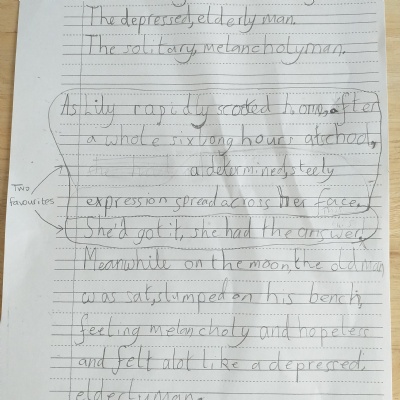 The depressed, elderly man.
The solitary, melancholy man.
As Lily rapidly scooted home, after
a whole six long hours at school,
a determined, steely
expression spread across her face.
Two
favourites
She'd got it, she had the answer.
Meanwhile on the moon, the old man
was sat, slumped on his bench,
feeling melancholy and hopeless
and felt alot like a depressed,
elderly man.